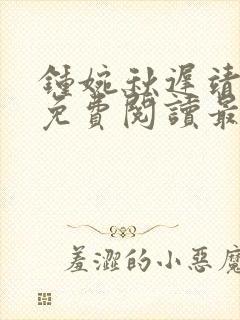 鍾婉秋遲靖
免費閱讀最
羞澀的小惡魔